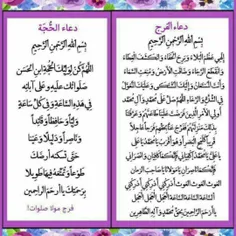 دعاء الفرج
بِسْمِ اللهِ الرَّحْمنِ الرَّحیمِ
إلهي عَظُمَ البَلاءُ وَبَرِحَ الخَفاءُ وَانكَشَفَ الغِطاءُ
وَانقَطَعَ الرَّجاءُ وَضاقَتِ الأرضُ وَمُنِعَتِ السَّماءُ
وَأنتَ المُستَعانُ وَإلَيكَ المُشتَكى وَعَلَيكَ المُعَوَّلُ
فِي الشِّدَّةِ وَالرَّخاءِ اللّهُمَّ صَلِّ عَلى مُحَمَّدٍ وَآلِ مُحَمَّدٍ
أُولِي الأمرِ الَّذينَ فَرَضتَ عَلَينا طاعَتَهُم وَعَرَّفتَنا
بِذلِكَ مَنزِلَتَهُم فَفَرِّج عَنّا بِحَقِّهِم فَرَجاً عاجِلاً
قَريباً كَلَمحِ البَصَرِ أو هُوَ أقرَبُ يا مُحَمَّدُ يا عَلِيُّ
يا عَلِيُّ يا مُحَمَّدُ اكفِياني فَإنَّكُما كافِيانِ وَانصُراني
فَإنَّكُما ناصِرانِ يا مَولانا يا صاحِبَ الزَّمانِ
الغَوثَ الغَوثَ الغَوثَ أدرِكني أدرِكني أدرِكني
السّاعَةَ السّاعَةَ السّاعَةَ العَجَلَ العَجَلَ العَجَلَ
يا أرحَمَ الرّاحِمينَ بِحَقِّ مُحَمَّدٍ وَآلِهِ الطّاهِرينَ
دعاء الحُجّة
بِسْمِ اللهِ الرَّحْمنِ الرَّحیمِ
اللّهُمَّ كُن لِوَلِيِّكَ الحُجَّةِ ابنِ الحَسَنِ
صَلَواتُكَ عَلَيهِ وَعَلى آبائِهِ
في هذِهِ السّاعَةِ وَفي كُلِّ ساعَةٍ
وَلِيّاً وَحافِظاً وَقائِداً
وَناصِراً وَدَليلاً وَعَيناً
حَتّى تُسكِنَهُ أرضَكَ
طَوعاً وَتُمَتِّعَهُ فيها طَويلا
بِرَحمَتِكَ يا أرحَمَ الرّاحِمينَ
فرج مولا صلوات!